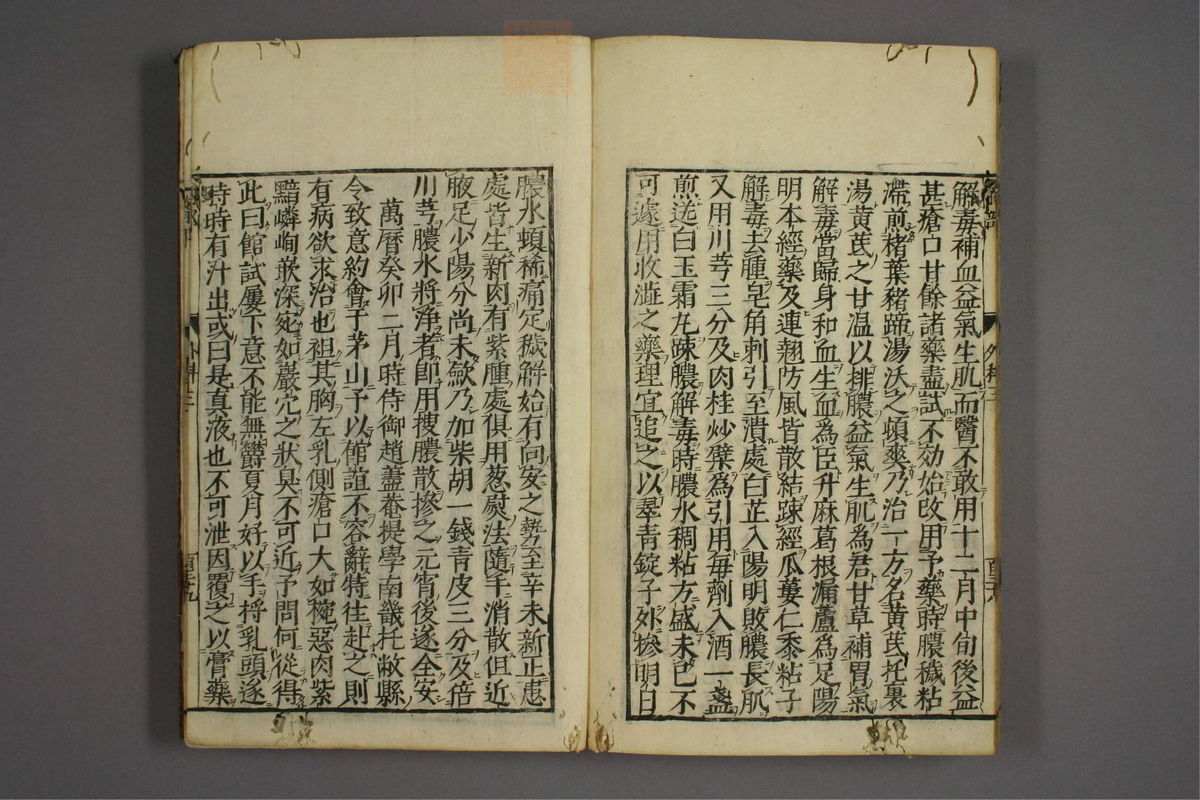 解毒補血益氣生肌而醫不敢用十二月中旬後益
甚瘡口甘餘諸藥盡試不効始改用予藥時膿穢粘
滯煎楮葉猪蹄湯沃之頓爽乃治一方名黃芪托裏
湯黃芪之甘温以排膿益氣生肌為君甘草補胃氣
解毒當歸身和血生血為臣升麻葛根漏蘆為足陽
明本經藥及連翹防風皆散結踈經瓜蔞仁黍粘子
解毒去腫皂角刺引至潰處白芷入陽明敗膿長肌
又用川芎三分及肉桂炒蘗為引用每劑入酒一盞
煎送白玉霜丸踈膿解毒時膿水稠粘方盛未已不
可遽用收澁之藥理宜追之以翠青錠子外摻明日
膿水頓稀痛定穢解始有向安之勢至辛未新正患
處皆生新肉有紫腫處俱用葱熨法隨手消散但近
腋足少陽分尚未歛乃加柴胡一錢青皮三分及倍
川芎膿水將淨者即用搜膿散摻之元宵後遂全安
萬曆癸卯二月時侍御趙藎菴提學南畿托敝縣
令致意約會于茅山予以館誼不容辭特往赴之則
有病欲求治也袒其胸左乳側瘡口大如椀惡肉紫
黯嶙峋嵌深宛如巖穴之狀臭不可近予問何從得
此曰館試屢下意不能無欝夏月好以手捋乳頭遂
時時有汁出或曰是真液也不可泄因覆之以膏藥
外科三